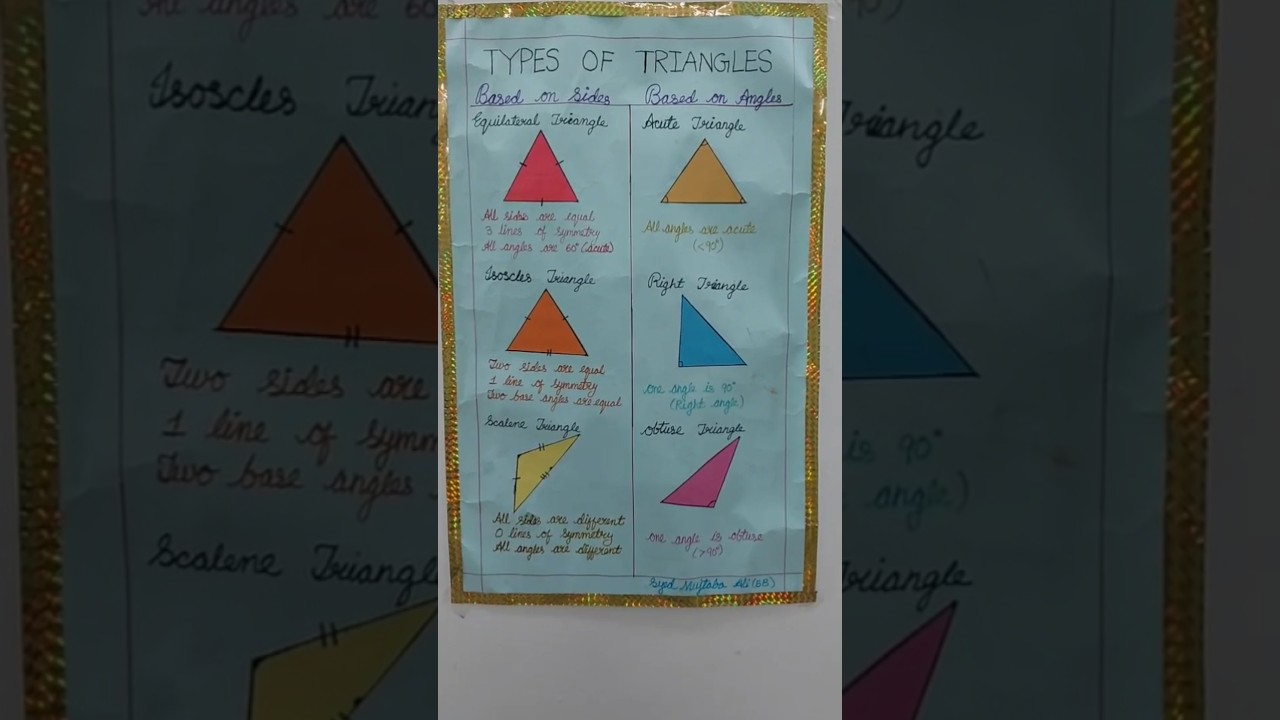 TYPES OF TRIANGLES
Based on Sides
Equilateral Triangle
All sides are equal
3 lines of symmetry
All angles are 60° (acute)
Isoscles Triangle
Two sides are equal
1 line of symmetry
Two base angles are equal
Scalene Triangle
All sides are different
0 lines of symmetry
All angles are different
Based on Angles
Acute Triangle
All angles are acute
(<90°)
Right Triangle
one angle is 90°
(Right angle)
Obtuse Triangle
one angle is obtuse
(>90°)
Syed Mujtaba Ali (8B)